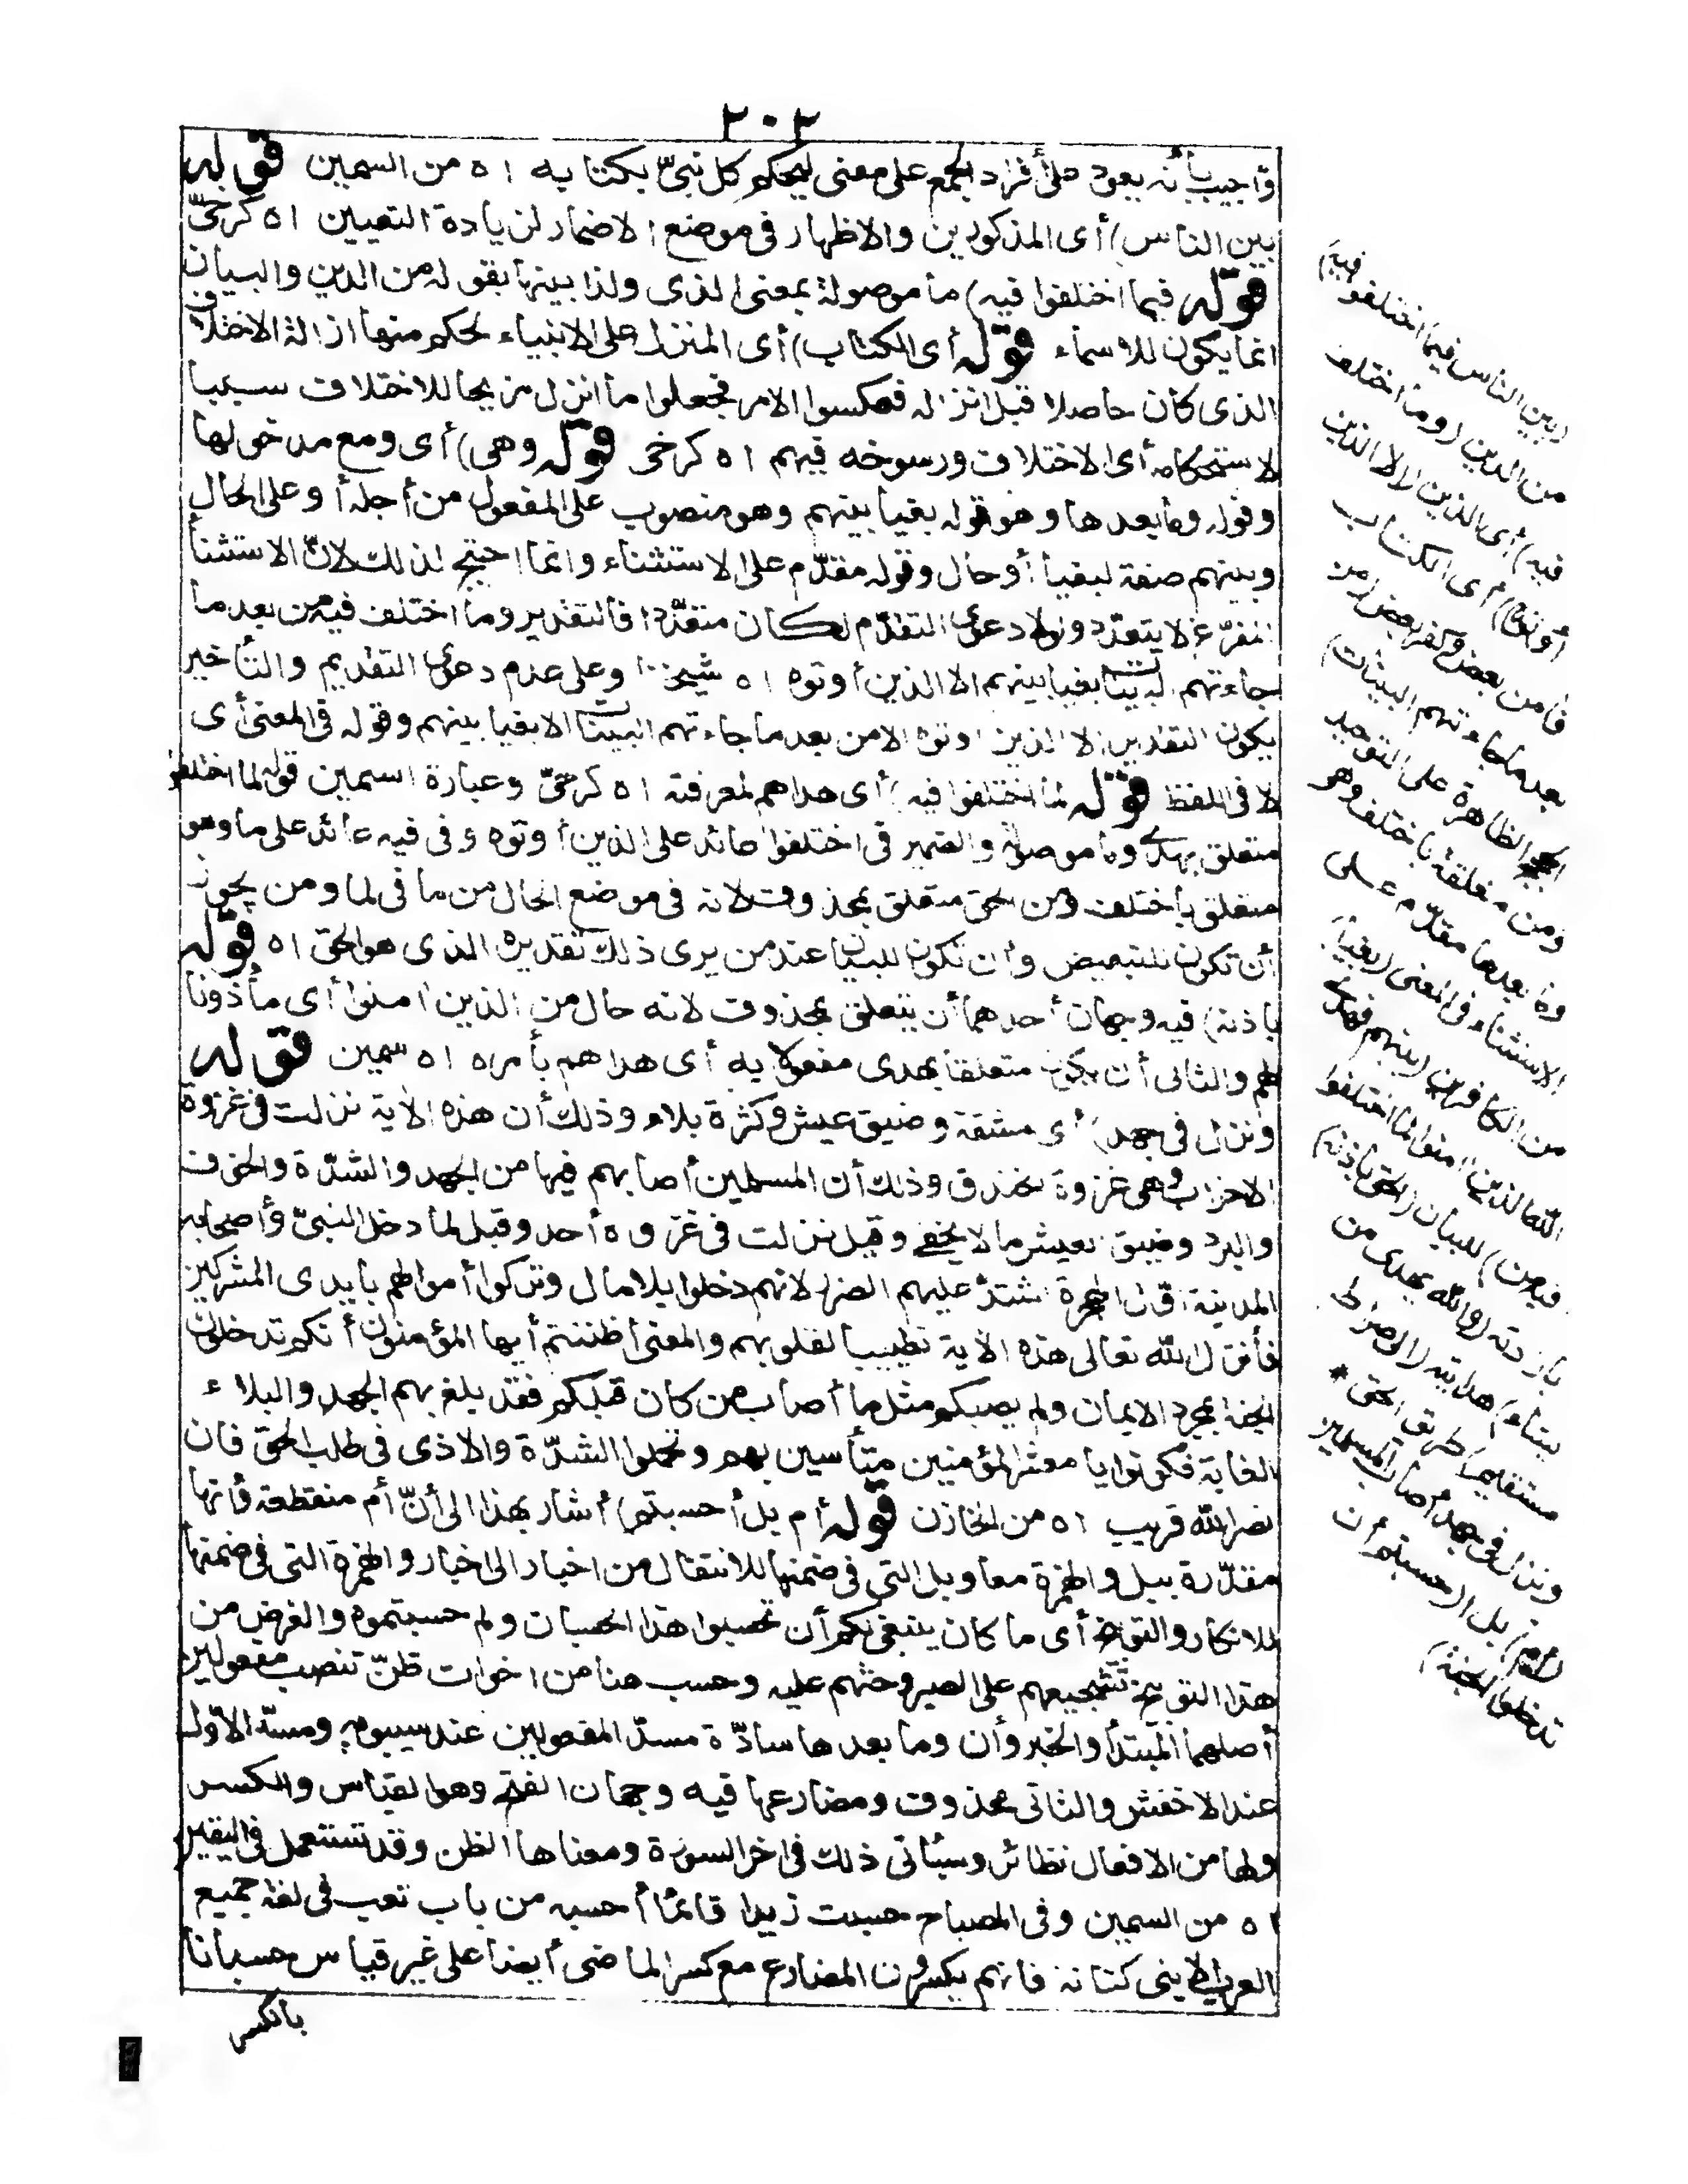 ٢٠٢
وأجيب بأنه يعود على أفراد الجمع على معنى ليحكم كل نبىّ بكتابه ا ه من السمين قوله
بين الناس) أى المذكورين والاظهار فى موضع الاضمار لزيادة التعيين ا ه كرخىّ
قوله فيما اختلفوا فيه) ما موصولة بمعنى الذى ولذا بينها بقوله من الدين والبيان
انما يكون للاسماء قوله أى الكتاب) أى المنزل على الانبياء لحكم منها ازالة الاختلاف
الذى كان حاصلا قبل انزاله فعكسوا الامر فجعلوا ما انزل مزيحا للاختلاف سببا
لاستحكامه أى الاختلاف ورسوخه فيهم ا ه كرخى قوله وهى) أى ومع مدخولها
وقوله وما بعدها وهو قوله بغيا بينهم وهو منصوب على المفعول من أجله أو على الحال
وبينهم صفة لبغيا أو حال وقوله مقدّم على الاستثناء وانما احتيج لذلك لانّ الاستثنا
المفرّغ لا يتعدّد ولولا دعوى التقدّم لكان متعدّدا فالتقدير وما اختلف فيه من بعد ما
جاءتهم البينات بغيا بينهم الا الذين أوتوه ا ه شيخنا وعلى عدم دعوى التقديم والتأخير
يكون التقدير الا الذين اوتوه الا من بعد ما جاءتهم البينات الا بغيا بينهم وقوله فى المعنى أى
لا فى اللفظ قوله لما اختلفوا فيه) أى هداهم لمعرفته ا ه كرخىّ وعبارة السمين قوله لما اختلفوا
متعلق بهدى وما موصولة والضمير فى اختلفوا عائد على الذين أوتوه وفى فيه عائد على ما وهو
متعلق باختلف ومن الحق متعلق بمحذوف لانه فى موضع الحال من ما فى لما ومن يجوز
أن تكون للتبعيض وأن تكون للبيان عند من يرى ذلك تقديره الذى هو الحق ا ه قوله
باذنه) فيه وجهان أحدهما أن يتعلق بمحذوف لانه حال من الذين امنوا أى مأذونا
لهم والثانى أن يكون متعلقا بهدى مفعولا به أى هداهم بأمره ا ه سمين قوله
ونزل فى جهد) أى مشقة وضيق عيش وكثرة بلاء وذلك أن هذه الاية نزلت فى غزوة
الاحزاب وهى غزوة الخندق وذلك أن المسلمين أصابهم فيها من الجهد والشدّة والخوف
والبرد وضيق العيش ما لا يخفى وقيل نزلت فى غزوة أحد وقيل لما دخل النبىّ وأصحابه
المدينة اوّل الهجرة اشتدّ عليهم الضرر لانهم دخلوا بلا مال وتركوا أموالهم بأيدى المشركين
فأنزل الله تعالى هذه الاية تطييبا لقلوبهم والمعنى أظننتم أيها المؤمنون أنكم تدخلون
الجنة بمجرد الايمان ولم يصبكم مثل ما أصاب من كان قبلكم فقد بلغ بهم الجهد والبلاء
الغاية فكونوا يا معشر المؤمنين متأسين بهم وتحملوا الشدّة والاذى فى طلب الحق فان
نصر الله قريب ا ه من الخازن قوله أم بل أحسبتم) أشار بهذا الى أنّ أم منقطعة فانها
مقدّرة ببل والهمزة معا وبل التى فى ضمنها للانتقال من اخبار الى اخبار والهمزة التى فى ضمنها
للانكار والتوبيخ أى ما كان ينبغى لكم أن تحسبوا هذا الحسبان ولم حسبتموه والغرض من
هذا التوبيخ تشجيعهم على الصبر وحثهم عليه وحسب هنا من اخوات ظنّ تنصب مفعولين
أصلهما المبتدأ والخبر وأن وما بعدها سادّة مسدّ المفعولين عند سيبويه ومسدّ الاوّل
عند الاخفش والثانى محذوف ومضارعها فيه وجهان الفتح وهو القياس والكسر
ولها من الافعال نظائر وسيأتى ذلك فى اخر السورة ومعناها الظن وقد تستعمل فى اليقين
ا ه من السمين وفى المصباح حسبت زيدا قائما أحسبه من باب تعب فى لغة جميع
العرب الا بنى كنانة فانهم يكسرون المضارع مع كسر الماضى أيضا على غير قياس حسبانا
بالكسر
(بين الناس فيما اختلفوا فيه)
من الدين (وما اختلف
فيه) أى الدين (الا الذين
أوتوه) أى الكتاب
فامن بعض وكفر بعض (من
بعد ما جاءتهم البينات)
الظاهرة على التوحيد
ومن متعلقة باختلف وهى
وما بعدها مقدّم على
الاستثناء فى المعنى (بغيا)
من الكافرين (بينهم فهدى
الله الذين امنوا لما اختلفوا
فيه من) للبيان (الحق باذنه)
بارادته (والله يهدى من
يشاء) هدايته (الى صراط
مستقيم) طريق الحق *
ونزل فى جهد أصاب المسلمين
(أم) بل ا (حسبتم أن
تدخلوا الجنة)